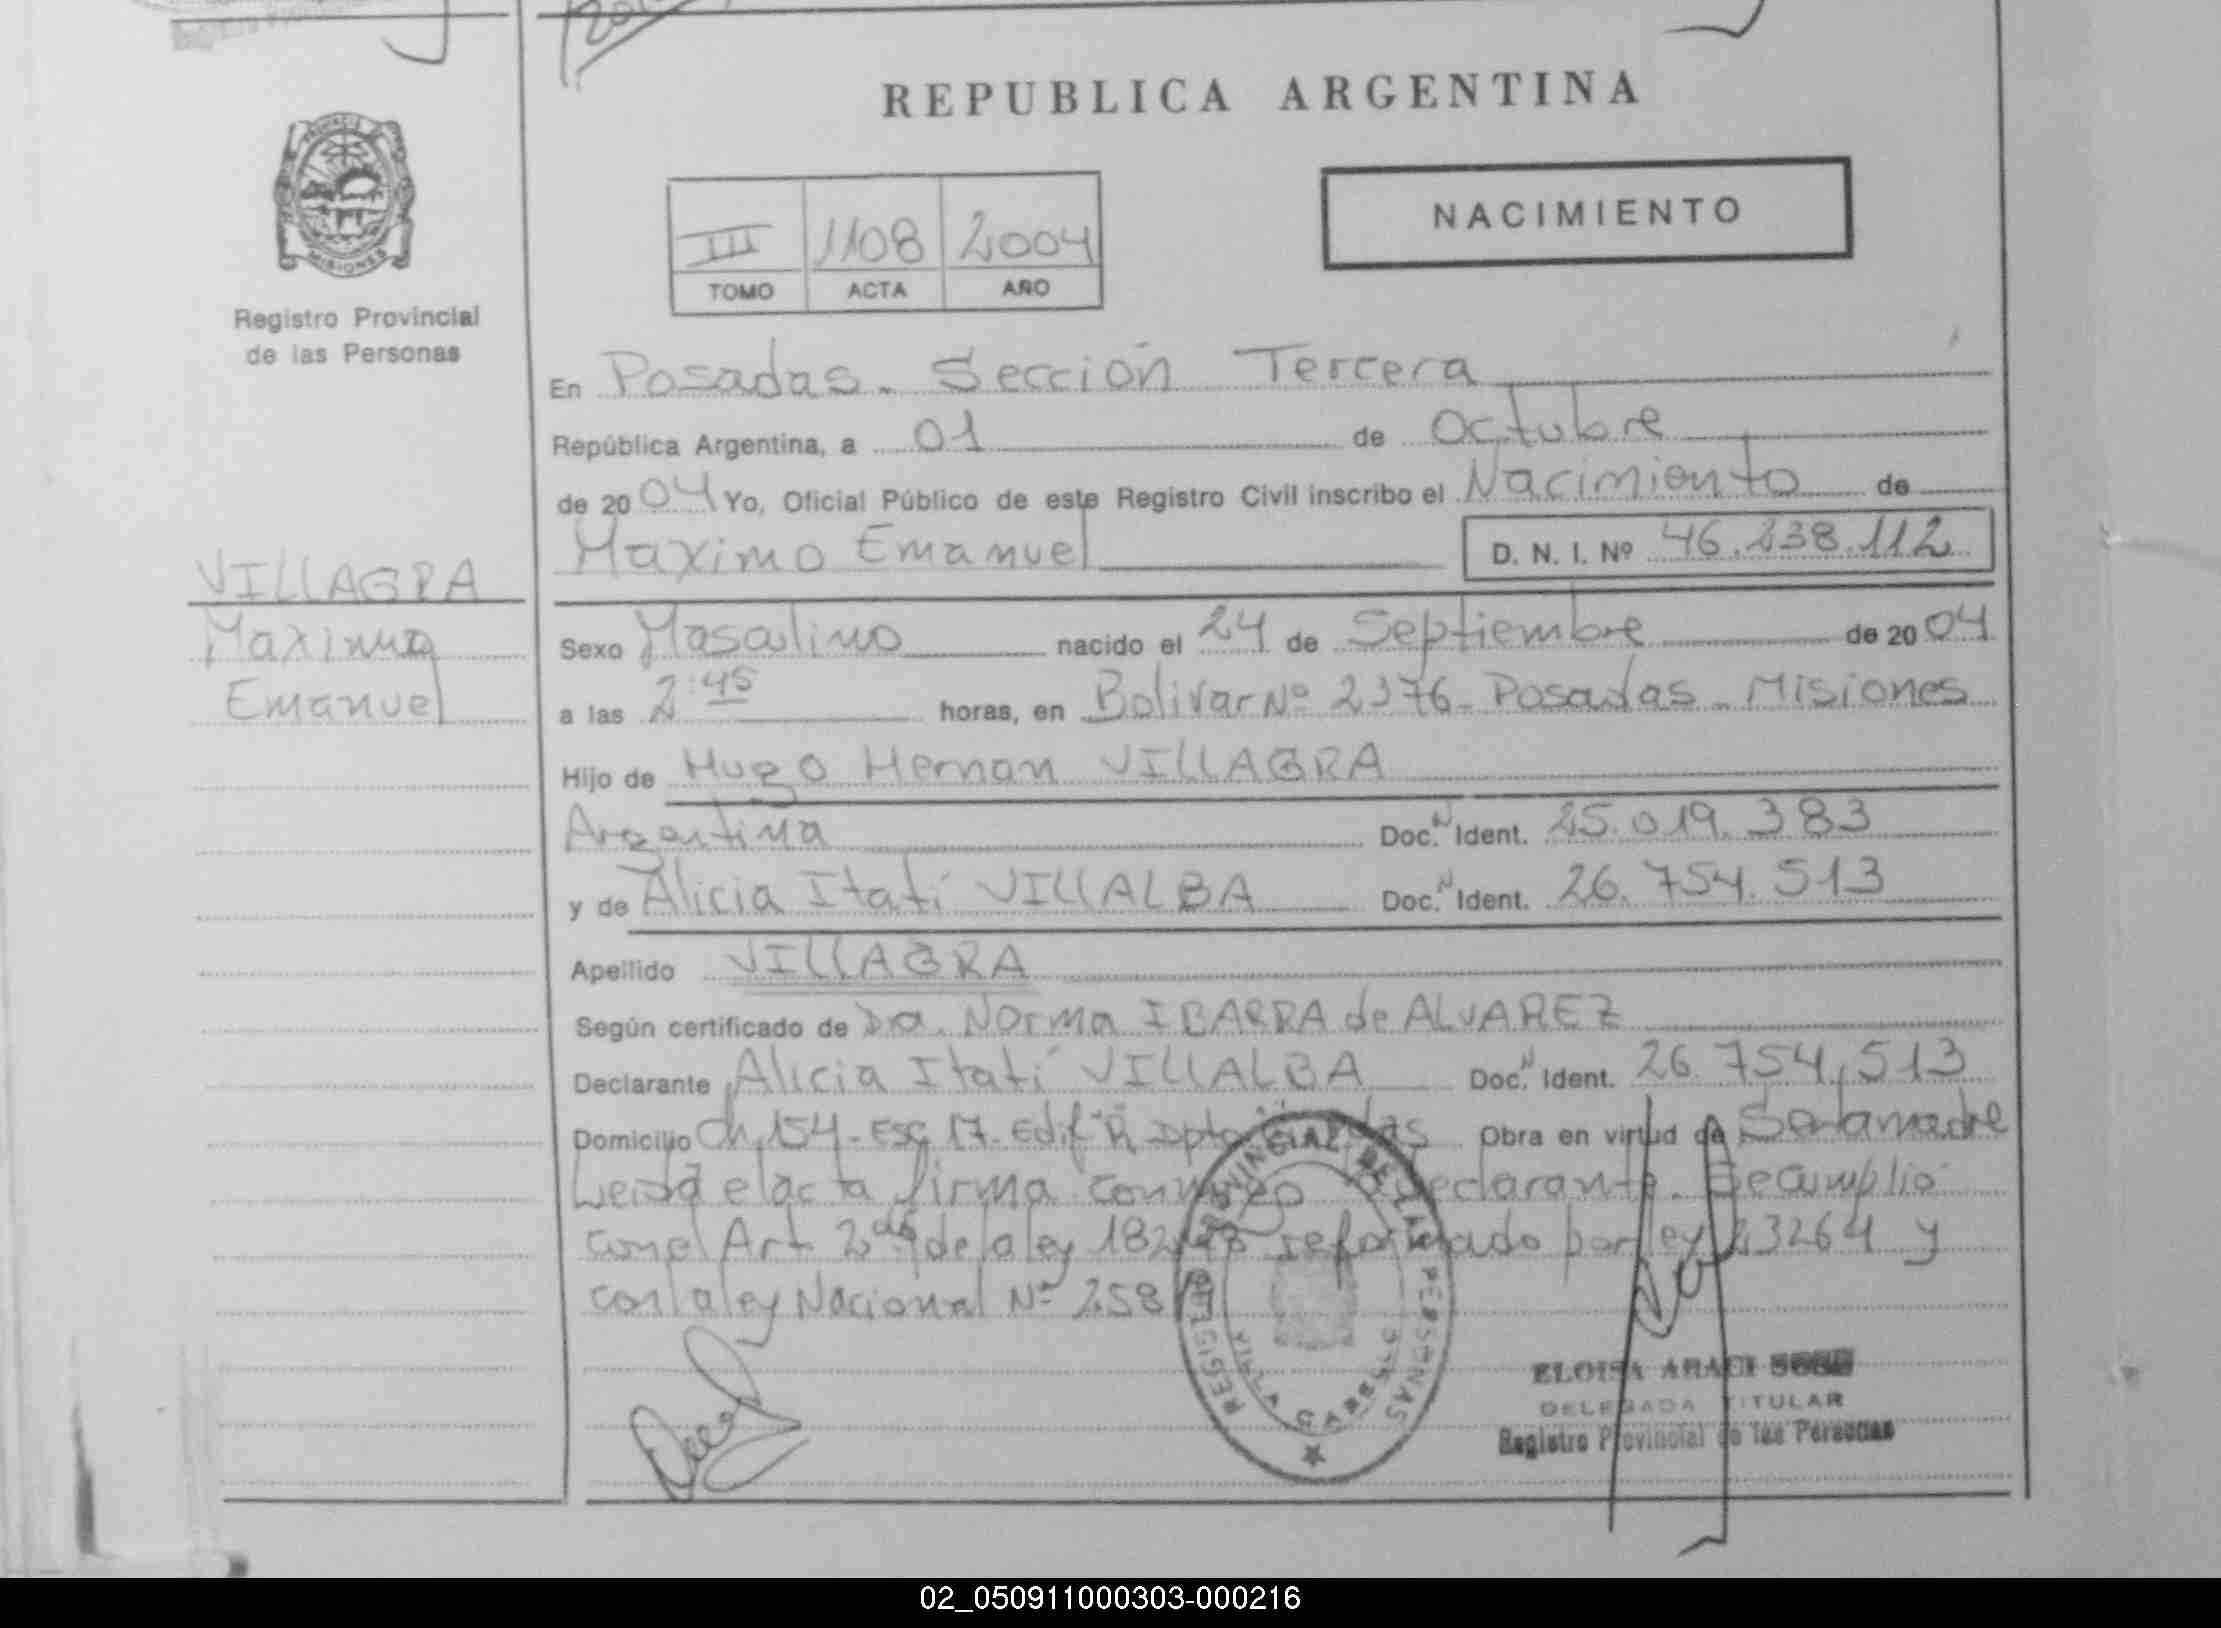 REPUBLICA ARGENTINA
PROVINCIA
MISIONES
Registro Provincial
de las Personas
III 1108 2004
TOMO ACTA AÑO
NACIMIENTO
En Posadas. Sección Tercera
República Argentina, a 01 de Octubre
de 2004 Yo, Oficial Público de este Registro Civil inscribo el Nacimiento de
Maximo Emanuel D. N. I. Nº 46.238.112
VILLAGRA
Maximo
Emanuel
Sexo Masculino nacido el 24 de Septiembre de 2004
a las 2:45 horas, en Bolivar Nº 2376- Posadas - Misiones
Hijo de Hugo Hernan VILLAGRA
Argentina Doc. N Ident. 25.019.383
y de Alicia Itatí VILLALBA Doc. N Ident. 26.754.513
Apellido VILLAGRA
Según certificado de Dra. Norma IBARRA de ALVAREZ
Declarante Alicia Itatí VILLALBA Doc. N Ident. 26.754.513
Domicilio Ch. 154 - Esc 17 - Edif Obra en virtud de Ser la madre
Leida el acta firma conmigo declarante. Se cumplió
con el Art 2 de la ley 18248 reformado por ley 23264 y
con la ley Nacional Nº 258
REGISTRO PROVINCIAL DE LAS PERSONAS
VILLA CABELLO
ELOISA ARACI
DELEGADA TITULAR
Registro Provincial de las Personas
02_050911000303-000216